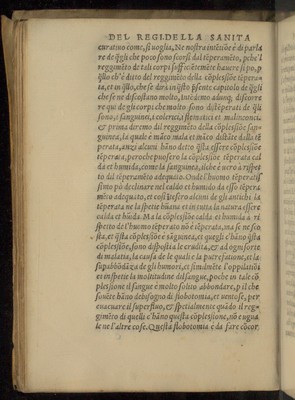 DEL REGI. DELLA SANITA
curatiuo come, si uoglia, Ne nostra intētiōe è di parla
re de q̄lli che poco sono scorsi dal tēperamēto, pche'l
reggimēto de tali corpi sufficiētemēte hauere si po, p
q̄llo ch'è ditto del reggimēto della cōplessiōe tēpera-
ta, et in q̄llo, che se dirà in q̄sto p̄sente capitolo de q̄lli
che se ne discostano molto, intēdemo adunq; discorre
re qui de gli corpi che molto sono distēperati de q̄li
sono, i sanguinei, i colerici, i flematici et malinconici.
& prima diremo del reggimēto della cōplessiōe san-
guinea, la quale è māco mala et māco distāte dalla tē
perata, anzi alcuni hāno detto q̄sta essere cōplessiōe
tēperata, peroche puosero la cōplessiōe tēperata cal
da et humida, come la sanguinea, il che è uero à rispet
to del tēperamēto adequato. Onde l'huomo tēperatis
simo pò declinare nel caldo et humido da esso tēpera
mēto adequato, et così lisero alcuni de gli antichi la
tēperata ne la spetie hūana et in tutta la natura essere
calda et hūida. Ma la cōplessiōe calda et humida à ri
spetto de l'huomo tēperato nō è tēperata, ma se ne sco
sta, et q̄sta cōplessiōe è sāguinea, et quegli c'hāno q̄sta
cōplessiōe, sono disposti à le crudità, & ad ogni sorte
di malatia, la causa de le quali è la putrefatione, et la
supabbōdāza de gli humori, et similmēte l'oppilatiōi
et in spetie la moltitudine del sangue, poche in tale cō
plessione il sangue è molto solito abbondare, p il che
souēte hāno debisogno di flobotomia, et uentose, per
euacuare il superfluo, & spetialmente quādo il reg-
gimēto di quelli c'hāno questa cōplessione, nō è ugua
le ne l'altre cose. Questa flobotomia è da fare cōcor